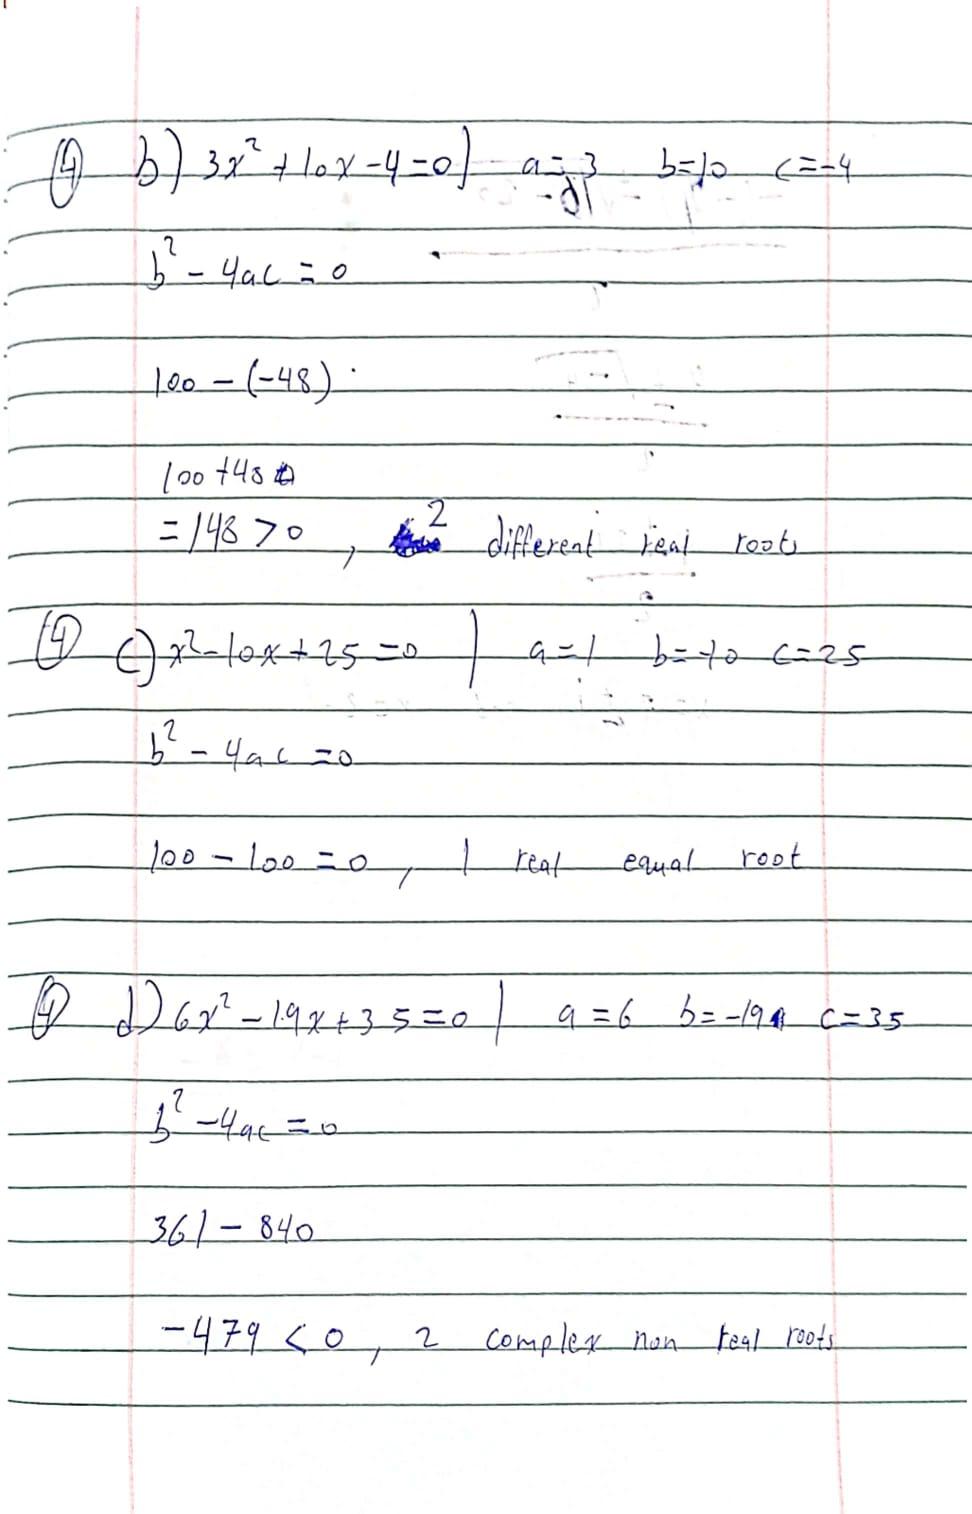 ④ b) 3x² + 10x - 4 = 0 | a = 3 b = 10 c = -4
b² - 4ac = 0
100 - (-48)
100 + 48
= 148 > 0 , 2 different real roots
④ c) x² - 10x + 25 = 0 | a = 1 b = -10 c = 25
b² - 4ac = 0
100 - 100 = 0 , 1 real equal root
④ d) 6x² - 19x + 35 = 0 | a = 6 b = -19 c = 35
b² - 4ac = 0
361 - 840
-479 < 0 , 2 complex non real roots